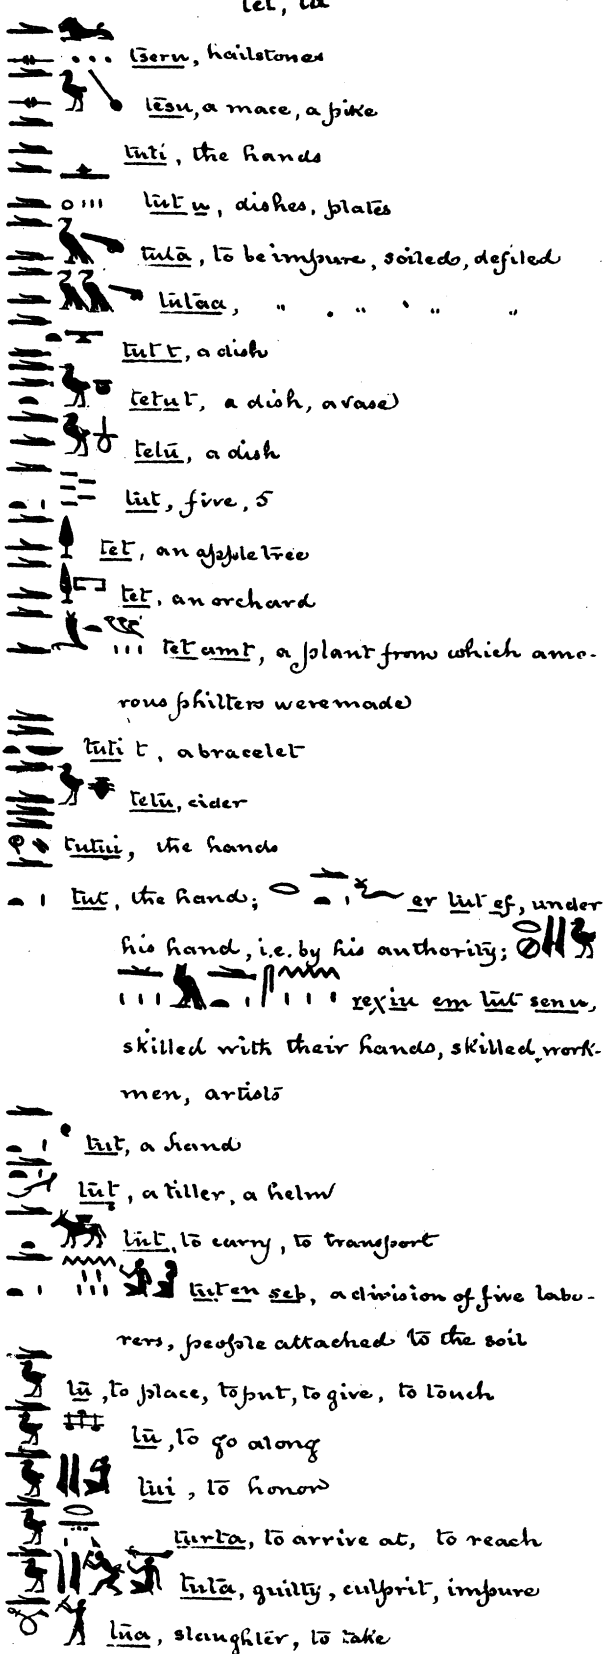 tet, ta
tseru, hailstones
tesu, a mace, a pike
tuti, the hands
tut u, dishes, plates
tuta, to be impure, soiled, defiled
tutaa, " " " "
tut t, a dish
tetut, a dish, a vase
tetu, a dish
tut, five, 5
tet, an apple tree
tet, an orchard
tet amt, a plant from which amo-
rous philters were made
tuti t, a bracelet
tetu, cider
tutui, the hands
tut, the hand; er tut ef, under
his hand, i.e. by his authority;
rexiu em tut senu,
skilled with their hands, skilled work-
men, artists
tut, a hand
tut, a tiller, a helm
tut, to carry, to transport
tut en sep, a division of five labo-
rers, people attached to the soil
tu, to place, to put, to give, to touch
tu, to go along
tui, to honor
turta, to arrive at, to reach
tuta, guilty, culprit, impure
tua, slaughter, to take